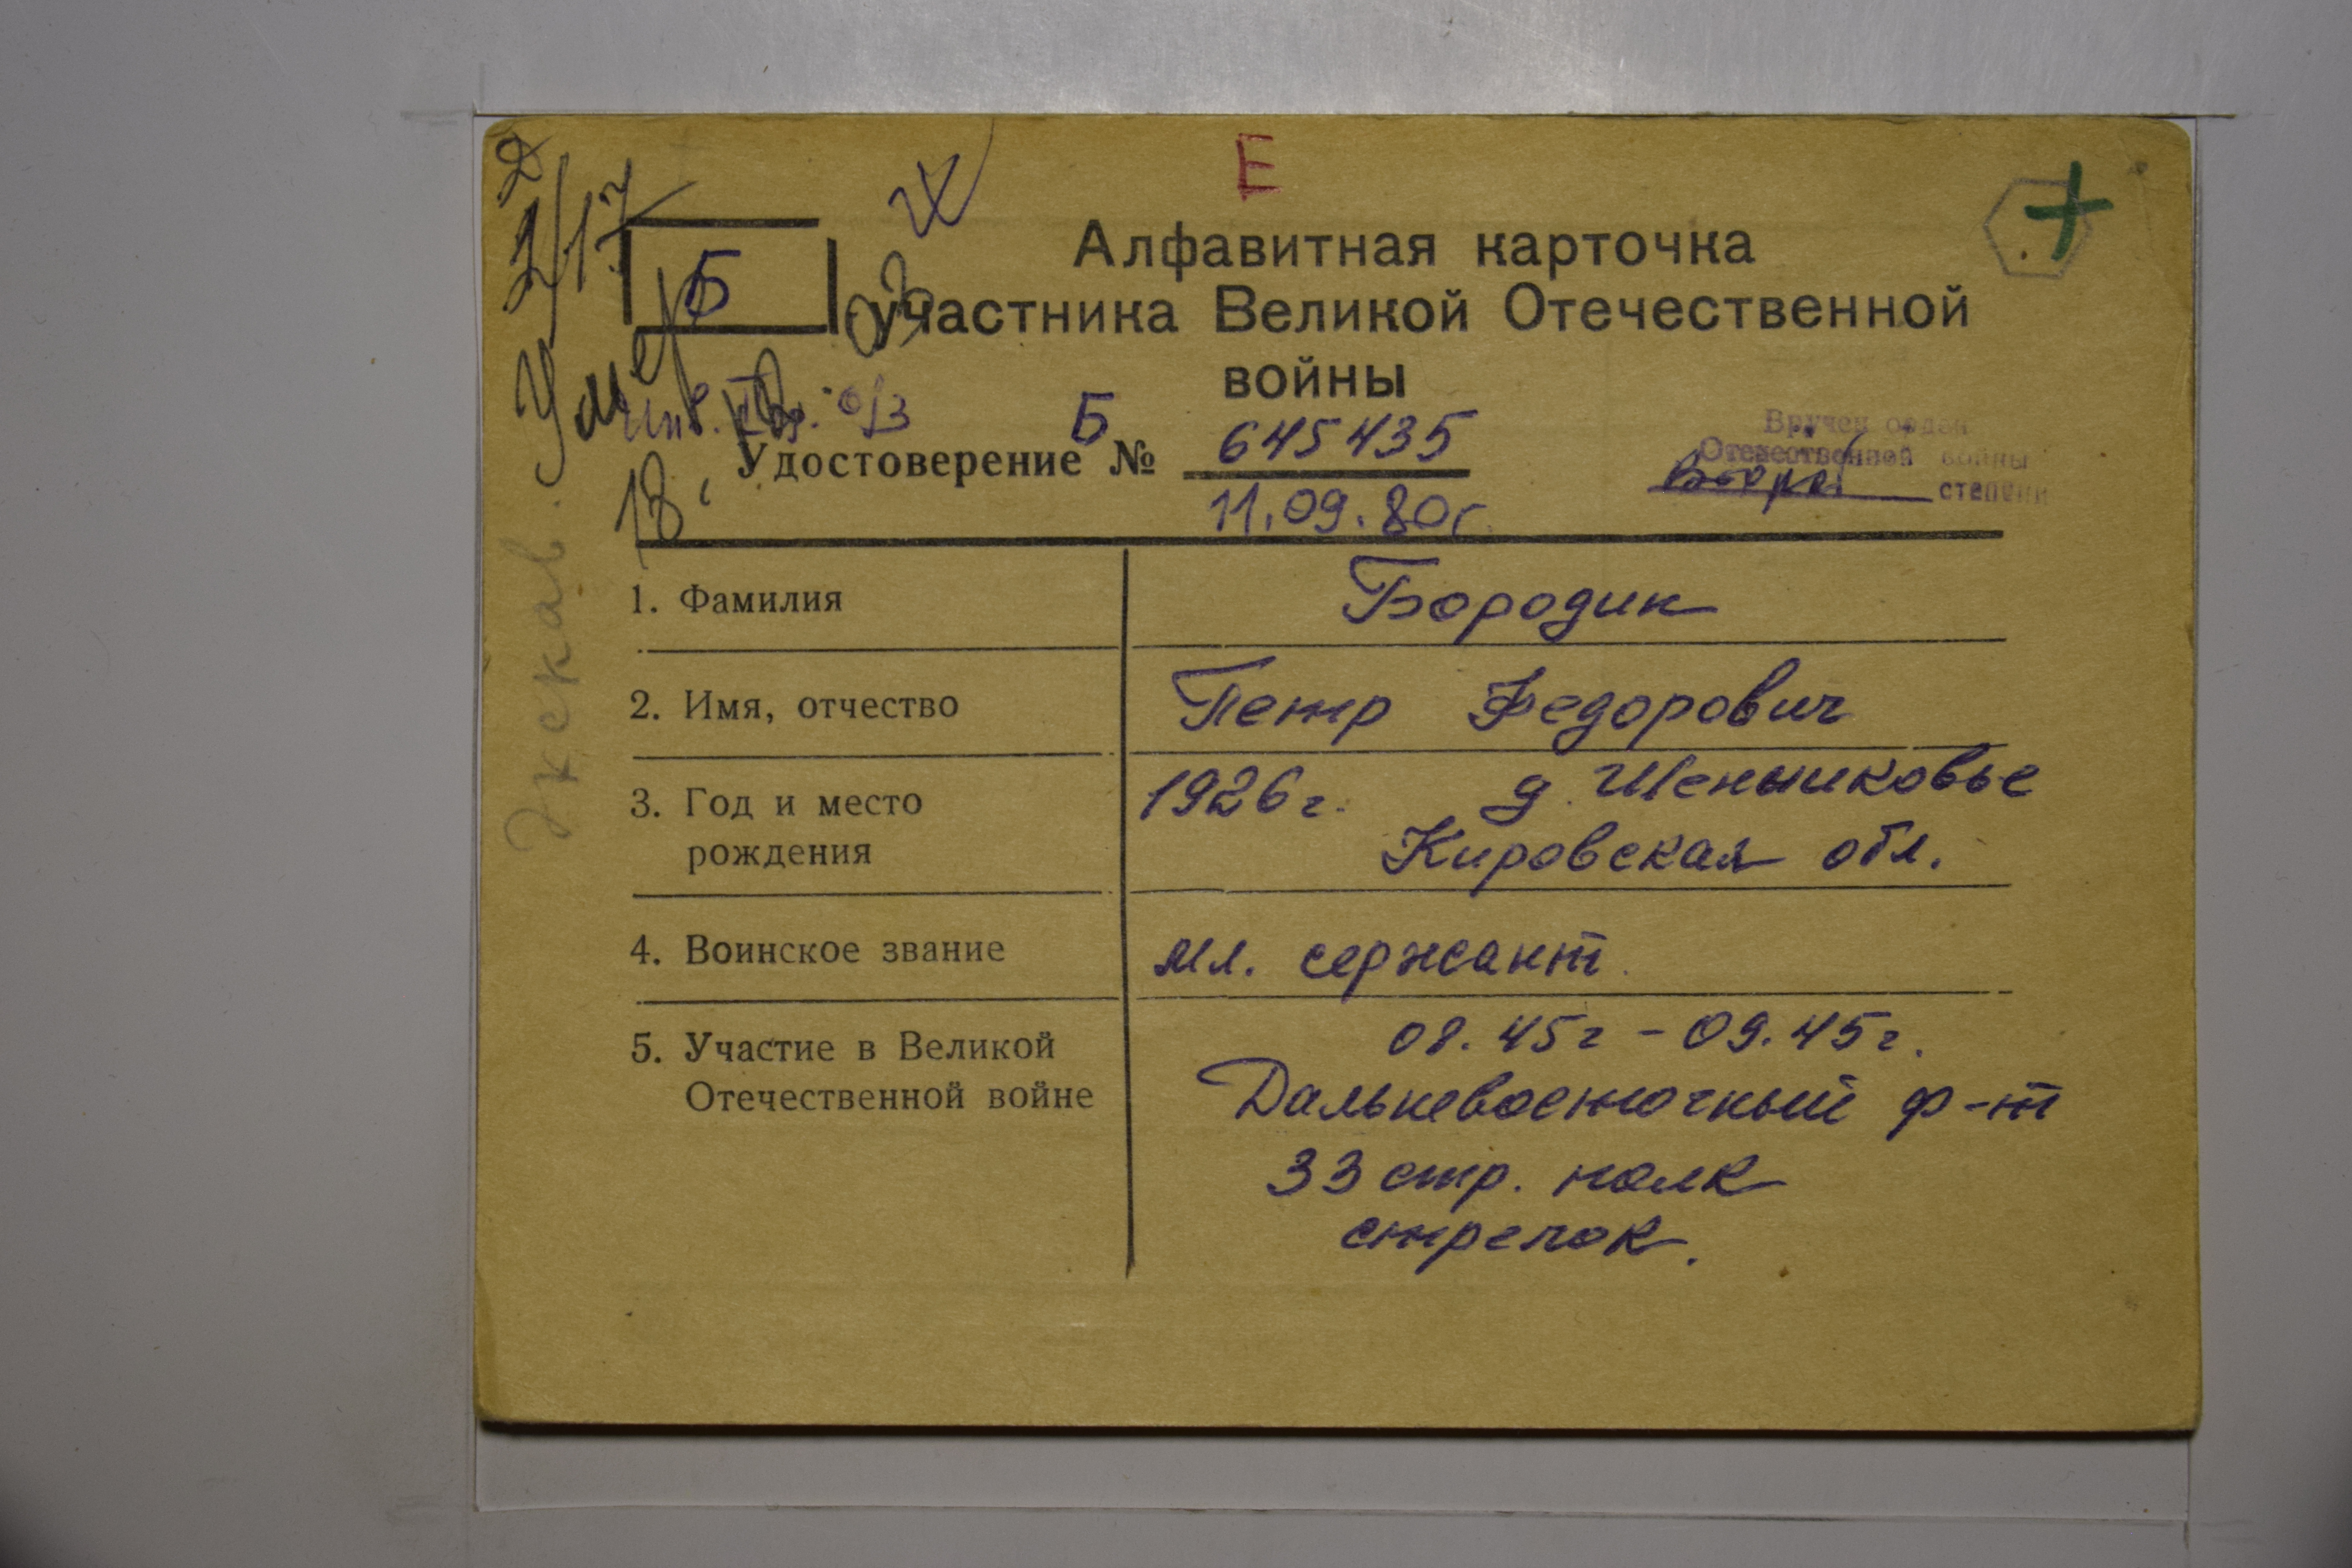 Е
2/17
Б
Алфавитная карточка
участника Великой Отечественной
войны
Умер
Инв. II гр. о/з
18.
Удостоверение Б № 645435
11.09.80г.
Вручен орден
Отечественной войны
второй степени
Экскав.
1. Фамилия Бородин
2. Имя, отчество Петр Федорович
3. Год и место рождения 1926 г. д. Шеншиковье
Кировская обл.
4. Воинское звание мл. сержант.
5. Участие в Великой Отечественной войне 08.45г - 09.45г.
Дальневосточный ф-т
33 стр. полк
стрелок.